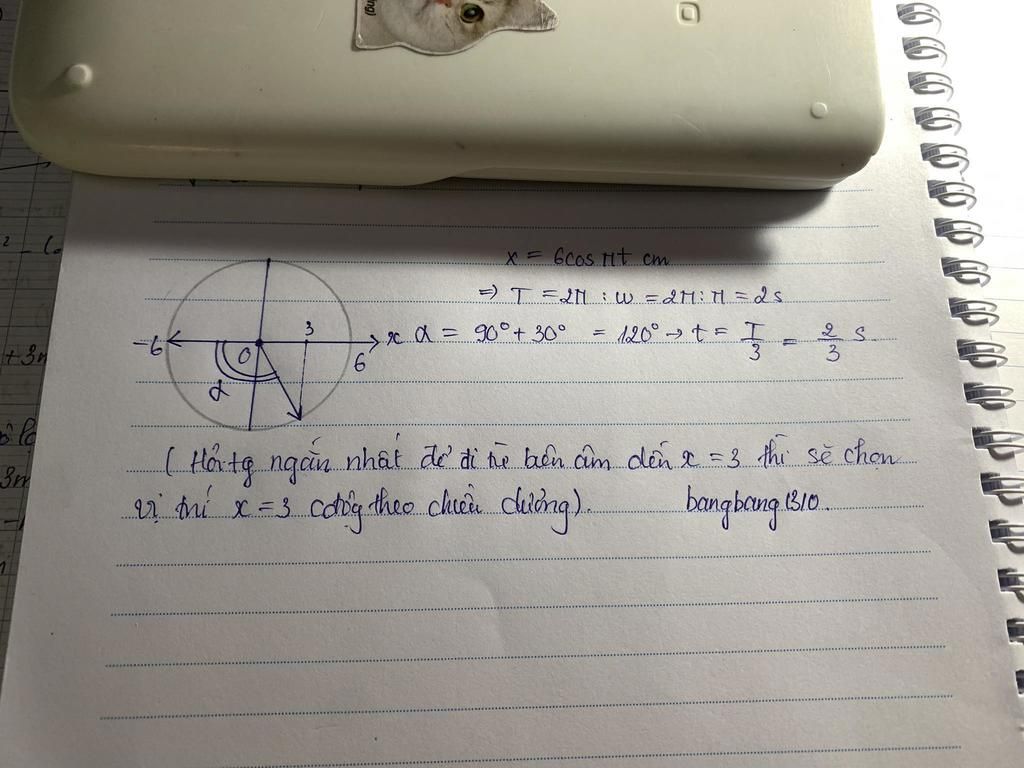 ing)
x = 6cos πt cm
⇒ T = 2π : ω = 2π : π = 2s
-6 O 3 6 x α = 90° + 30° = 120° → t = T/3 = 2/3 s.
α
( Hỏi tg ngắn nhất để đi từ biên âm đến x = 3 thì sẽ chọn
vị trí x = 3 cđộg theo chiều dương).
bangbang1310.